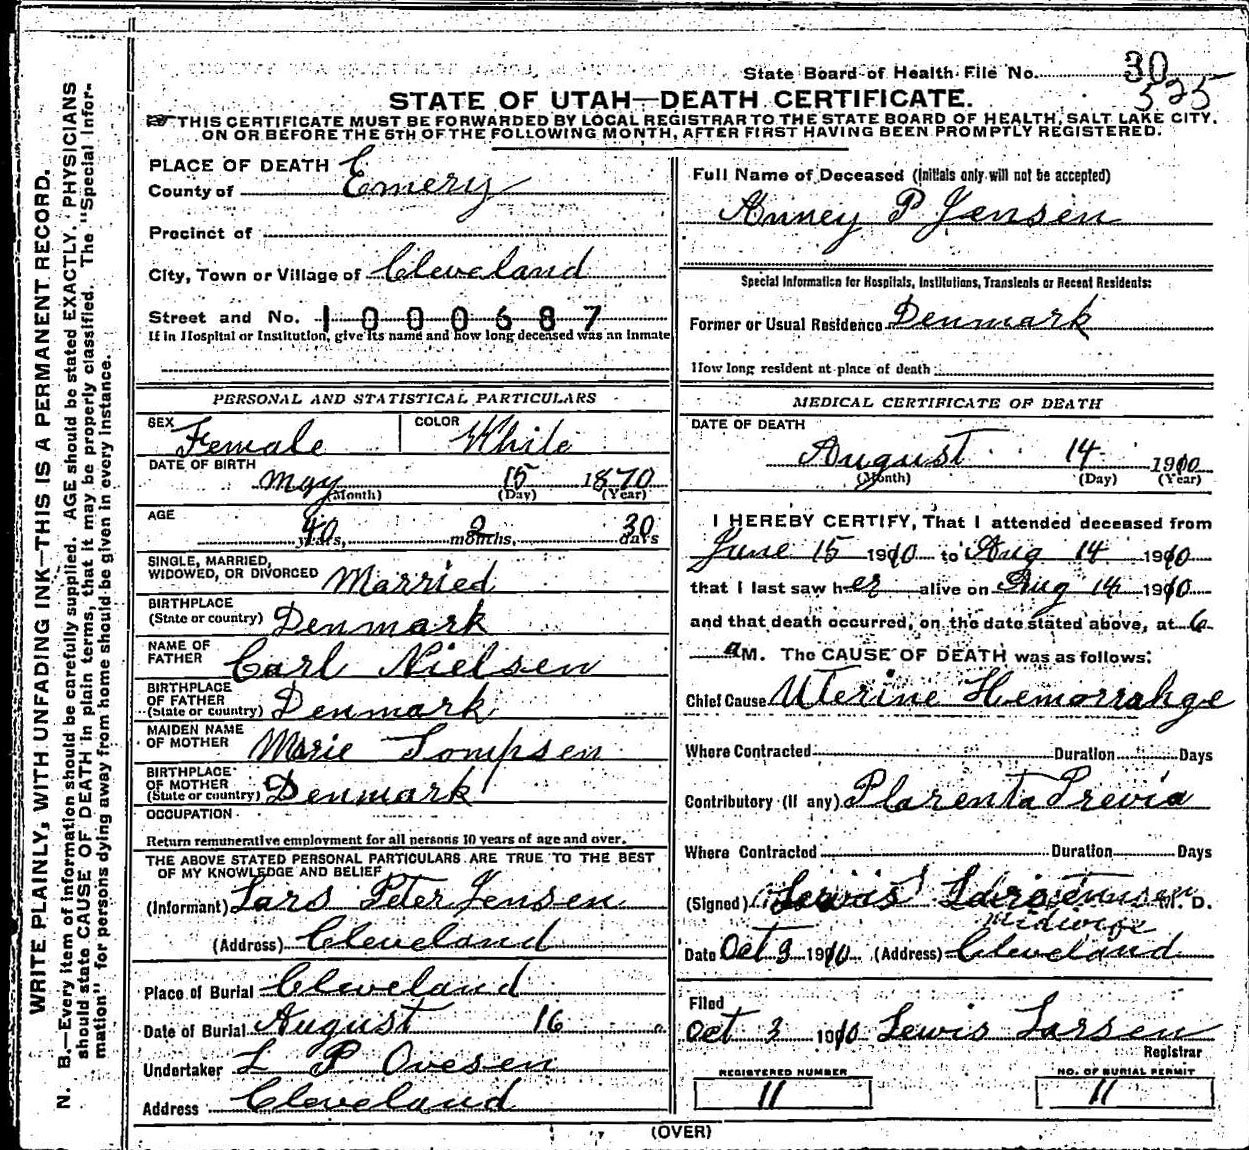 State Board of Health File No. 30
325
STATE OF UTAH—DEATH CERTIFICATE.
THIS CERTIFICATE MUST BE FORWARDED BY LOCAL REGISTRAR TO THE STATE BOARD OF HEALTH, SALT LAKE CITY.
ON OR BEFORE THE 5TH OF THE FOLLOWING MONTH, AFTER FIRST HAVING BEEN PROMPTLY REGISTERED.
WRITE PLAINLY, WITH UNFADING INK—THIS IS A PERMANENT RECORD.
N. B.—Every item of information should be carefully supplied. AGE should be stated EXACTLY. PHYSICIANS
should state CAUSE OF DEATH in plain terms, that it may be properly classified. The "Special Infor-
mation" for persons dying away from home should be given in every instance.
PLACE OF DEATH
County of Emery
Precinct of
City, Town or Village of Cleveland
Street and No. 1000687
If in Hospital or Institution, give its name and how long deceased was an inmate
PERSONAL AND STATISTICAL PARTICULARS
SEX Female COLOR White
DATE OF BIRTH May 15 1870
(Month) (Day) (Year)
AGE 40 years, 2 months, 30 days
SINGLE, MARRIED,
WIDOWED, OR DIVORCED Married
BIRTHPLACE
(State or country) Denmark
NAME OF
FATHER Carl Nielsen
BIRTHPLACE
OF FATHER
(State or country) Denmark
MAIDEN NAME
OF MOTHER Marie Tompsen
BIRTHPLACE
OF MOTHER
(State or country) Denmark
OCCUPATION
Return remunerative employment for all persons 10 years of age and over.
THE ABOVE STATED PERSONAL PARTICULARS ARE TRUE TO THE BEST
OF MY KNOWLEDGE AND BELIEF
(Informant) Lars Peter Jensen
(Address) Cleveland
Place of Burial Cleveland
Date of Burial August 16
Undertaker L P Ovesen
Address Cleveland
Full Name of Deceased (Initials only will not be accepted)
Anney P Jensen
Special Information for Hospitals, Institutions, Transients or Recent Residents:
Former or Usual Residence Denmark
How long resident at place of death
MEDICAL CERTIFICATE OF DEATH
DATE OF DEATH
August 14 1910
(Month) (Day) (Year)
I HEREBY CERTIFY, That I attended deceased from
June 15 1910 to Aug 14 1910
that I last saw her alive on Aug 14 1910
and that death occurred, on the date stated above, at 6
a M. The CAUSE OF DEATH was as follows:
Chief Cause Uterine Hemorrahge
Where Contracted Duration Days
Contributory (if any) Plarenta Previa
Where Contracted Duration Days
(Signed) M. D.
Midwife
Date Oct 3 1910 (Address) Cleveland
Filed
Oct 3 1910 Lewis Larsen
Registrar
REGISTERED NUMBER
11
NO. OF BURIAL PERMIT
11
(OVER)